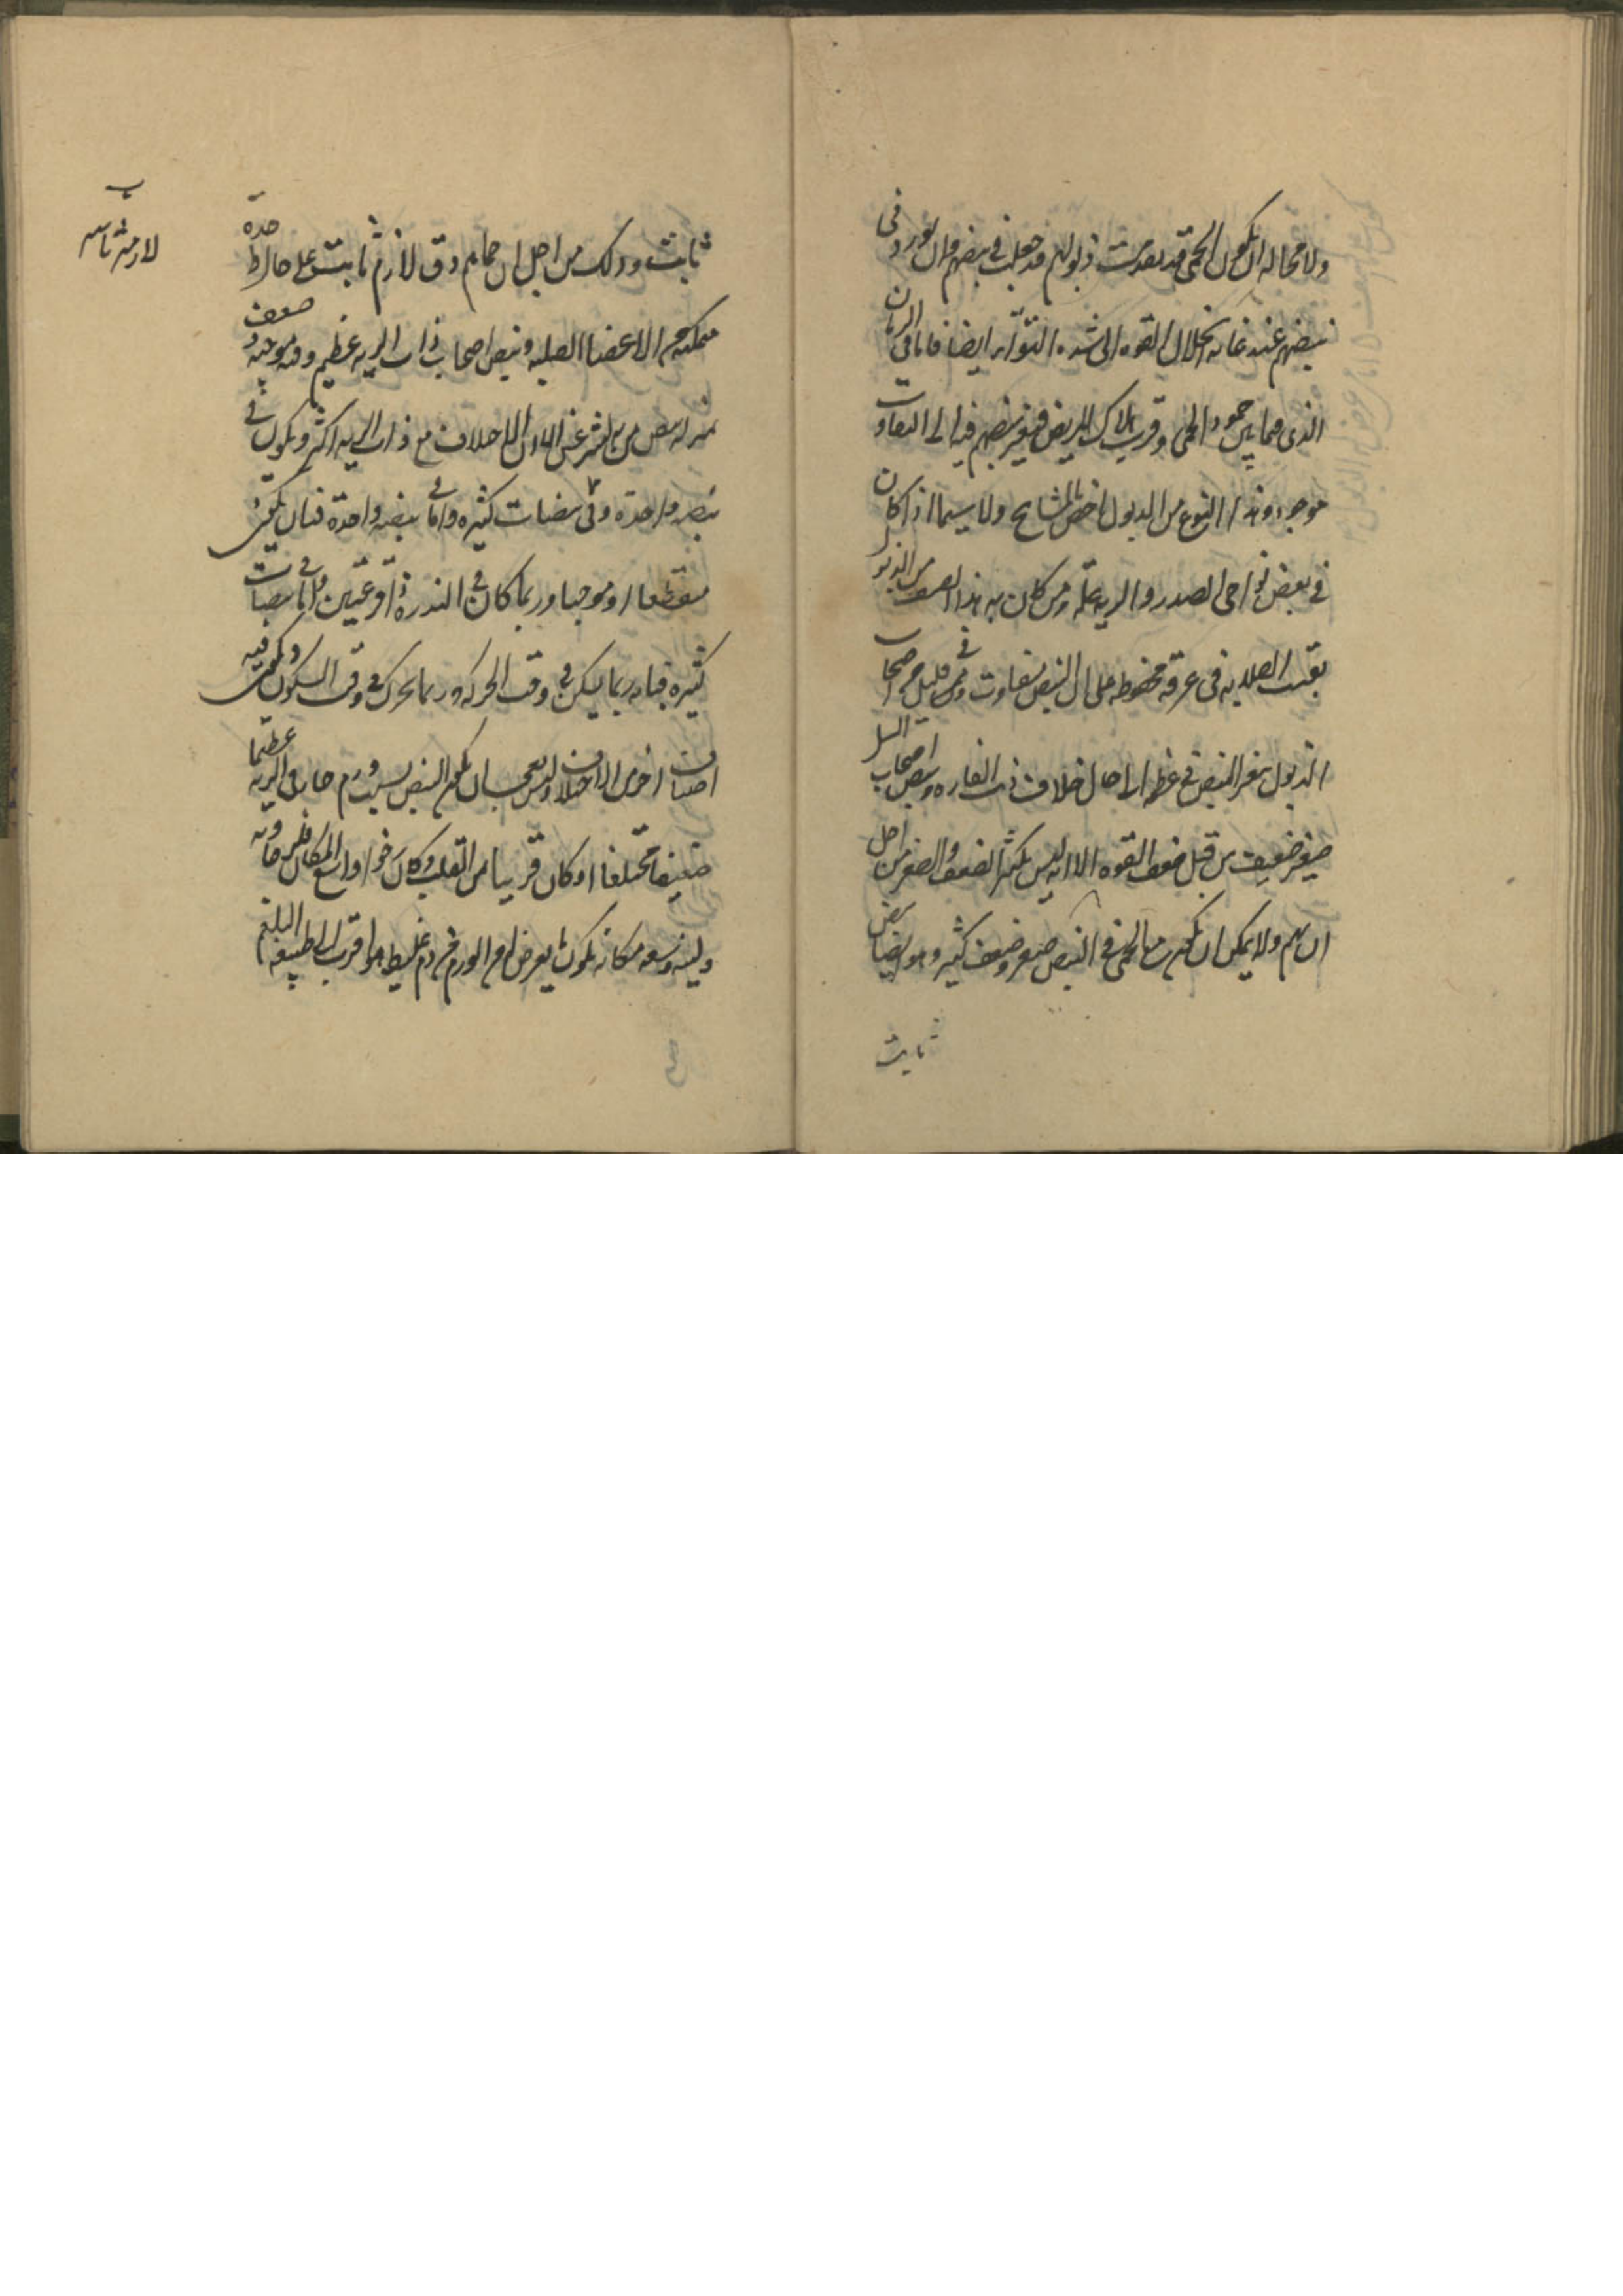 ولا محاله ان تكون الحمى قد تقدمت ذبولهم قد جعلت في نبضهم وان تورد في
نبضهم عند غايه انحلال القوه الى شده التواتر ايضا فاما في الزمان
الذي فيما بين خمود الحمى وقرب هلاك المريض فيتغير نبضهم فيه الى التفاوت
موجود وهذا النوع من الذبول اخص بالمشايخ ولا سيما اذا كان
في بعض نواحي الصدر والريه علة ومن كان به هذا الصنف من الذبول
بقيت الصلابه في عرقه محفوظه على ان النبض متفاوت وفي قليل من اصحاب
الذبول يتغير النبض في عظمه الى حال خلاف ذنب الفاره ونبض اصحاب السل
صغير ضعيف من قبل ضعف القوه الا انه ليس بكثير الضعف والصغر من اجل
ان بهم ولا يمكن ان تكون مع الحمى في النبض صغر وضعف كثير وهو ايضا نبض
ثابت
ثابت وذلك من اجل ان حماهم دق لازم ثابت على حال واحدة
متمكنه من الاعضا الصلبه ونبض اصحاب ذات الريه عظيم وفيه موجيه وضعف
نبضه واحدة وفي نبضات كثيره واما في نبضه واحدة فبان يكون
منقطعا او موجيا وربما كان في الندرة ذا قرعتين واما في نبضات
كثيره فبانه ربما يسكن في وقت الحركه وربما تحرك في وقت السكون ويكون فيه
اصناف اخرى من الاختلاف وليس بعجب ان يكون النبض بسبب ورم حار في الريه عظيما
ضعيفا مختلفا اذ كان قريبا من القلب وكان رخوا واسع المكان فلرخاوته
ولينه وسعه مكانه يكون ما يعرض له من الورم من دم غليظ هو اقرب الى طبيعه البلغم